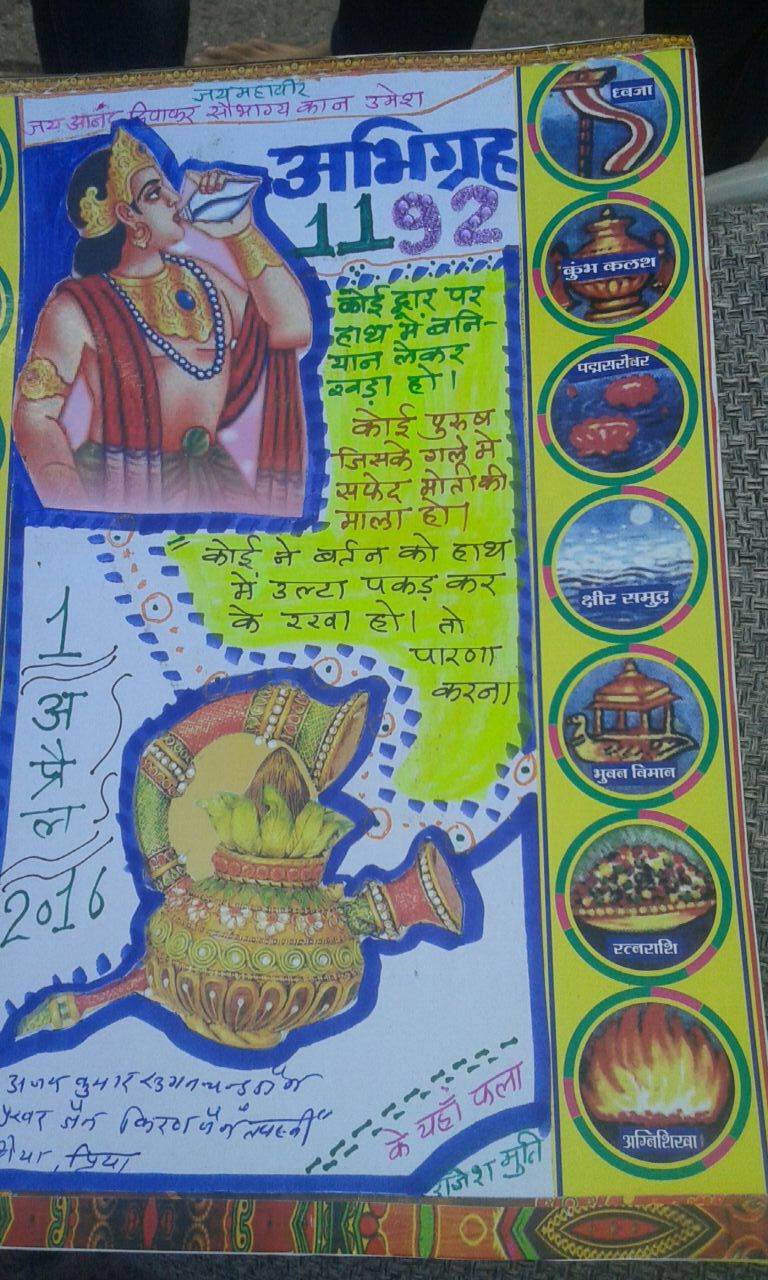 जय महावीर
जय आनंद दिवाकर सौभाग्य कान उमेश
अभिग्रह
1192
कोई द्वार पर
हाथ में बनि-
यान लेकर
खड़ा हो।
कोई पुरुष
जिसके गले मे
सफेद मोती की
माला हो।
कोई ने बर्तन को हाथ
में उल्टा पकड़ कर
के रखा हो। तो
पारणा
करना
1
अप्रैल
2016
अजय कुमार
जैन किरण जैन
प्रिया
के यहाँ फला
राजेश मुनि
ध्वजा
कुंभ कलश
पद्मसरोवर
क्षीर समुद्र
भुवन विमान
रत्नराशि
अग्निशिखा